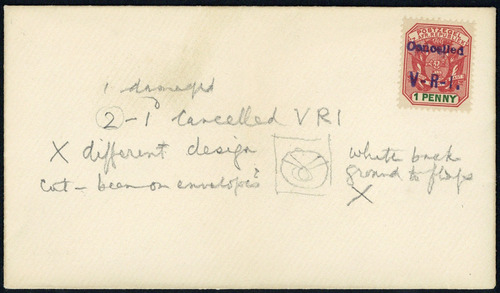 POSTZEGEL
Z. AFR. REPUBLIEK
Cancelled
V-R-I.
1 PENNY
1 damaged
2-1d Cancelled VRI
X different design
cut - been on envelopes?
White back
ground to flaps
X